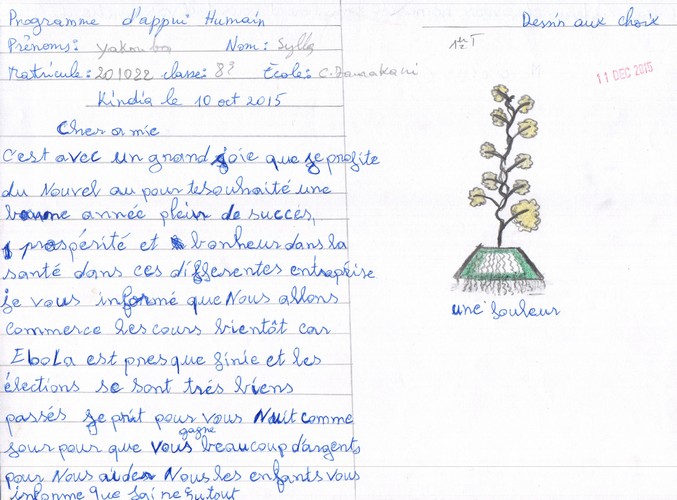 Programme d'appui Humain
Prénoms: yakouba Nom: Sylla
Matricule: 201022 classe: 8è École: C.
Kindia le 10 oct 2015
Cher amie
C'est avec un grand joie que je profite
du Nouvel au pour te souhaité une
bonne année plein de succès,
prospérité et bonheur dans la
santé dans ces differentes entreprise
je vous informé que Nous allons
commerce les cours bientôt car
Ebola est presque finie et les
élections se sont trés biens
passés je prit pour vous Nuit comme
jour pour que vous gagne beaucoup d'argents
pour Nous aider Nous les enfants vous
informe que j'ai reçu tout
Dessin aux choix
11 DEC 2015
une fouleur